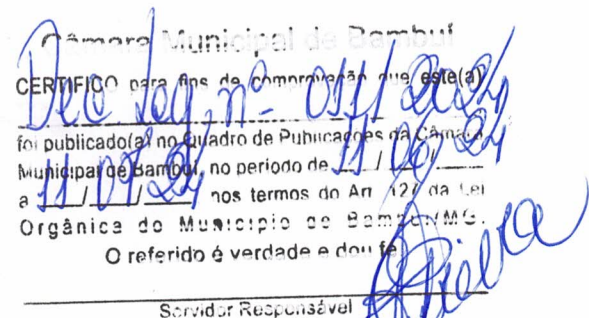 Câmara Municipal de Bambuí
CERTIFICO para fins de comprovação que este(a)
Dec Leg. nº 011/2024
foi publicado(a) no Quadro de Publicações da Câmara
Municipal de Bambuí, no período de 11/06/24
a 11/07/24 nos termos do Art. 127 da Lei
Orgânica do Município de Bambuí/MG.
O referido é verdade e dou fé
Servidor Responsável